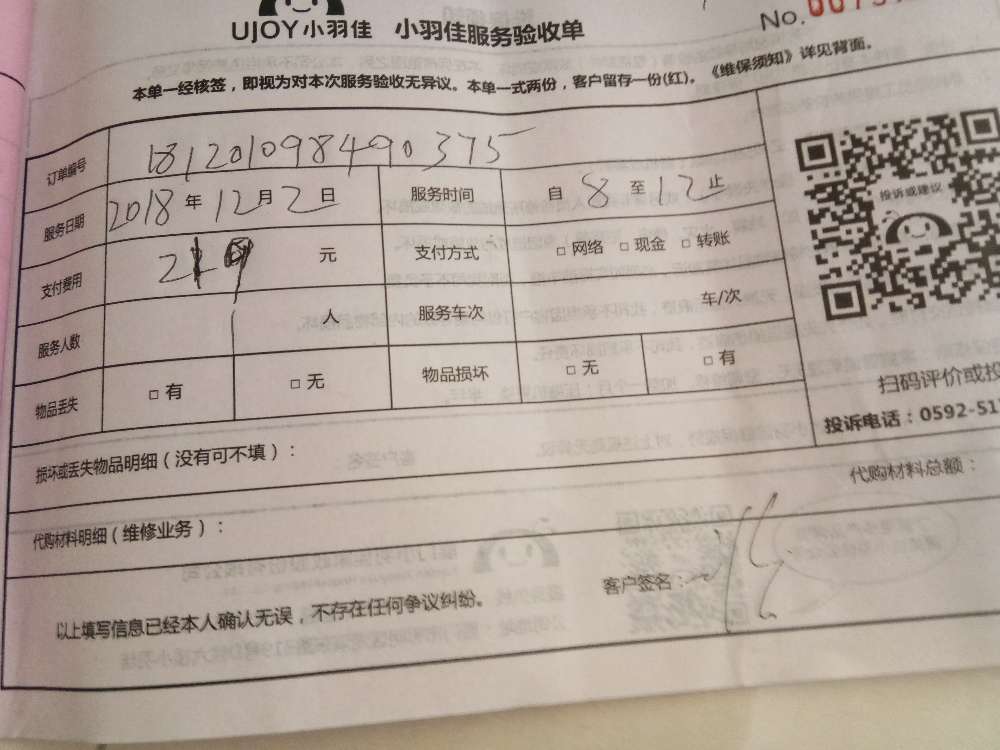 UJOY小羽佳 小羽佳服务验收单
No.
本单一经核签，即视为对本次服务验收无异议。本单一式两份，客户留存一份(红)。《维保须知》详见背面。
订单编号 181201098490375
服务日期 2018年12月2日 服务时间 自8至12止
支付费用 元 支付方式 □网络 □现金 □转账
服务人数 1人 服务车次 车/次
物品丢失 □有 □无 物品损坏 □无 □有
投诉或建议
扫码评价或投
投诉电话：0592-51
损坏或丢失物品明细（没有可不填）：
代购材料明细（维修业务）： 代购材料总额：
以上填写信息已经本人确认无误，不存在任何争议纠纷。 客户签名：